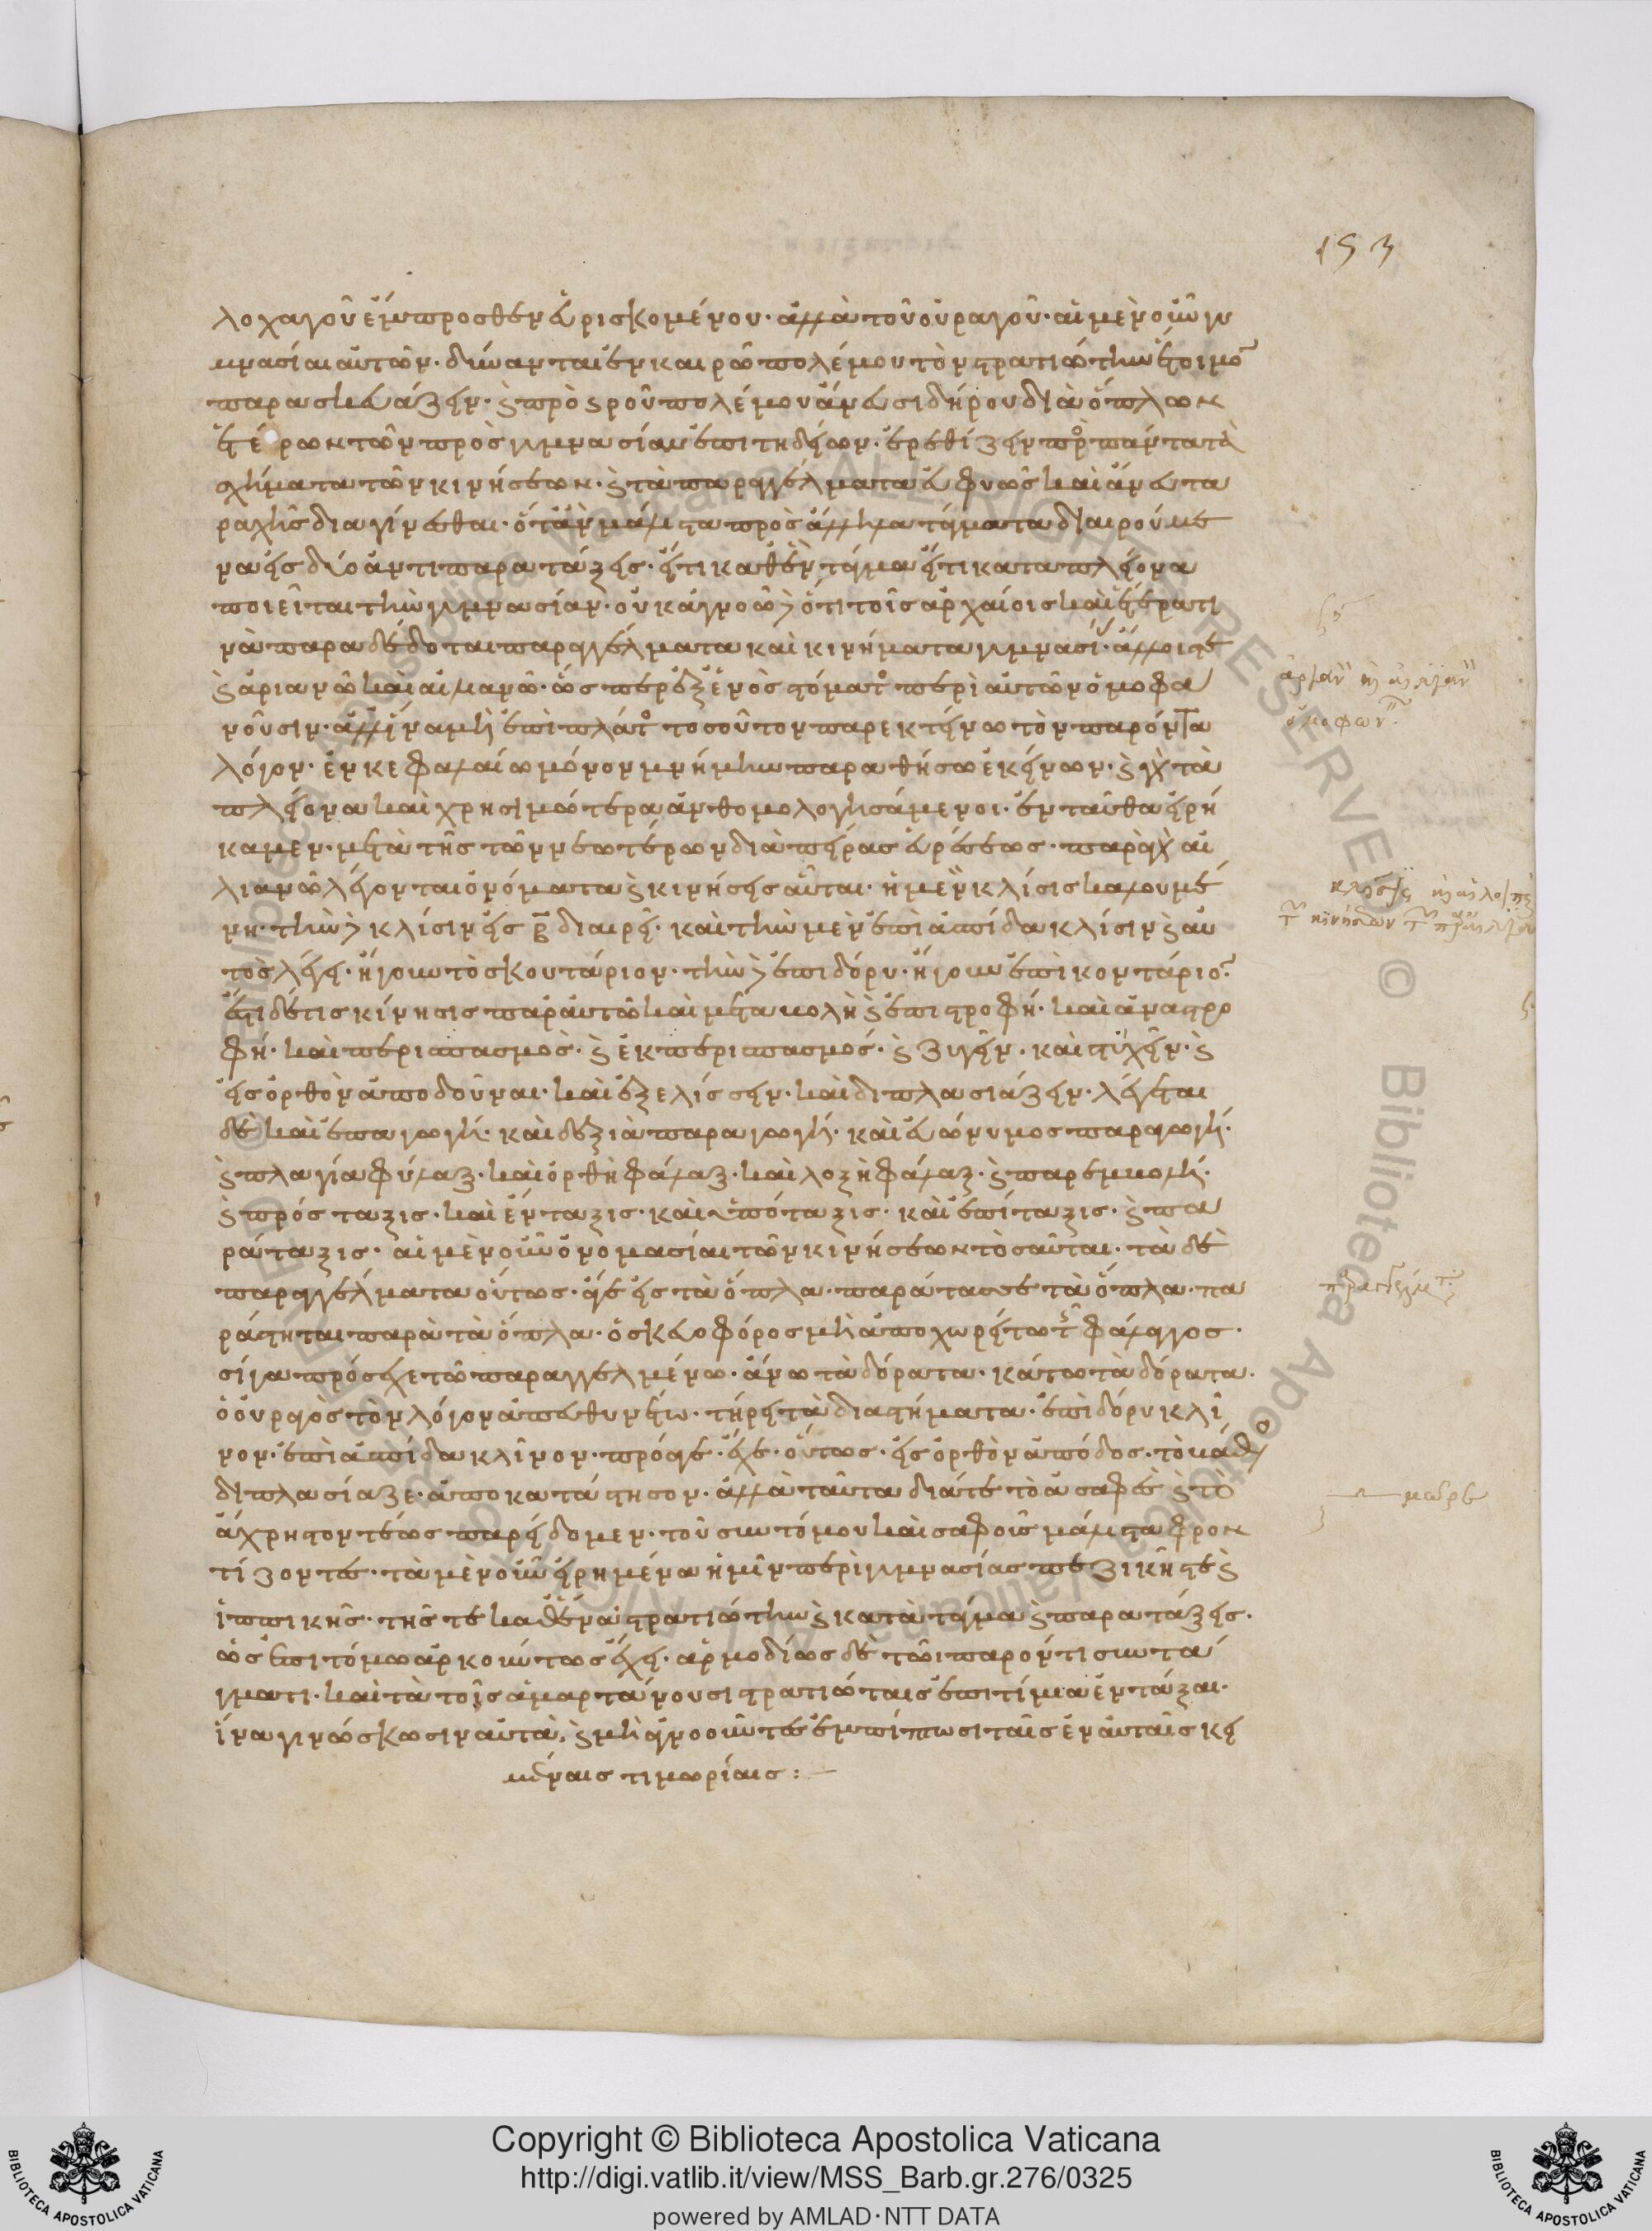 153
λοχαγοῦ ἔμπροσθεν εὑρισκομένου· ἀλλὰ τοῦ οὐραγοῦ· αἱ μὲν οὖν γυ
μνασίαι αὐτῶν· δύνανται ἐν καιρῶ πολέμου τὸν στρατιώτην ἕτοιμο
παρασκευάζειν· καὶ πρὸ καιροῦ πολέμου ἄνευ σιδήρου διὰ ὅπλων
ἑτέρων τῶν πρὸς γυμνασίαν ἐπιτηδείων· ἐρεθίζειν πρὸς πάντα τὰ
σχήματα τῶν κινήσεων· καὶ τὰ παραγγέλματα εὐφυῶς καὶ ἄνευ τα
ραχῆς διαγίνεσθαι· ὅταν μάλιστα πρὸς ἄλληλα τάγματα διαιρούμε
να εἰς δύο ἀντιπαρατάξεις· εἴτι καθὲν τάγμα εἴτι κατα πλείονα
ποιεῖται τὴν γυμνασίαν· οὐκ ἀγνοῶ δὲ ὅτι τοῖς ἀρχαίοις καὶ ἕτερά τι
νὰ παραδέδοται παραγγέλματα καὶ κινήματα γυμνασί· ἄλλοις τε
καὶ ἀριανῶ καὶ αἰλιανῶ· ὥσπερ ἐξ ἑνὸς στόματος περὶ αὐτῶν ὁμοφω
νοῦσιν· ἀλλ' ἵνα μὴ ἐπὶ πλάτος τοσοῦτον παρεκτείνω τὸν παρόντα
λόγον· ἐν κεφαλαίω μόνον μνήμην παραθήσω ἐκείνων· καὶ γὰρ τὰ
πλείονα καὶ χρησιμώτερα ἀνθομολογησάμενοι· ἐνταῦθα εἰρή
καμεν· μετὰ τῆς τῶν νεωτέρων διὰ πείρας εὑρέσεως· παρὰ γὰρ αἰ
λιανῶ λέγονται ὀνόματα καὶ κινήσεις αὗται· ἡ μὲν κλίσις καλουμέ
νη· τὴν δὲ κλίσιν εἰς β διαιρεῖ· καὶ τὴν μὲν ἐπὶ ἀσπίδα κλίσιν καὶ αὐ
τὸς λέγει· ἤγουν τὸ σκουτάριον· τὴν δὲ ἐπὶ δόρυ· ἤγουν ἐπὶ κοντάριο
ἔστι δέ τις κίνησις παρ' αὐτῶ καὶ μεταβολὴ καὶ ἐπιστροφή· καὶ ἀναστρο
φή· καὶ περισπασμὸς· καὶ ἐκπερισπασμός· καὶ ζυγεῖν· καὶ στιχεῖν· καὶ
εἰς ὀρθὸν ἀποδοῦναι· καὶ ἐξελίσσειν· καὶ διπλασιάζειν· λέγεται
δὲ καὶ ἐπαγωγὴ· καὶ δεξιὰ παραγωγή· καὶ εὐώνυμος παραγωγή·
καὶ πλαγία φύλαξ· καὶ ὀρθὴ φάλαξ· καὶ λοξὴ φάλαξ· καὶ παρεμβολή·
καὶ πρόσταξις· καὶ ἔνταξις· καὶ ὑπόταξις· καὶ ἐπίταξις· καὶ πα
ράταξις· αἱ μὲν οὖν ὀνομασίαι τῶν κινήσεων τοσαῦται· τὰ δὲ
παραγγέλματα οὕτως· ἄγε εἰς τὰ ὅπλα· παράστασσε τὰ ὅπλα· πα
ράστηται παρὰ τὰ ὅπλα· ὁ σκευοφόρος μὴ ἀποχωρείτω τῆς φάλαγγος·
σίγα πρόσεχε τῶ παραγγελμένω· ἄνω τὰ δόρατα· κάτω τὰ δόρατα·
ὁ οὐραγὸς τὸν λόγον ἀπευθυνέτω· τήρει τὰ διαστήματα· ἐπὶ δόρυ κλῖ
νον· ἐπὶ ἀσπίδα κλῖνον· πρόαγε· ἔχε· οὕτως· εἰς ὀρθὸν ἀπόδος· τὸ βάθος
διπλασίαζε· ἀποκατάστησον· ἀλλὰ ταῦτα διά τε τὸ ἀσαφὲς καὶ τὸ
ἄχρηστον τέως παρείδομεν· τοῦ συντόμου καὶ σαφοῦς μάλιστα φρον
τίζοντες· τὰ μὲν οὖν εἰρημένα ἡμῖν περὶ γυμνασίας πεζικῆς τε καὶ
ἱππικῆς· τῆς τε καθ' ἕνα στρατιώτην καὶ κατὰ τάγμα καὶ παρατάξεις·
ὡς ἐπιτόμω ἀρκούντως ἔχει· ἁρμοδίως δὲ τῶι παρόντι συντά
γματι· καὶ τὰ τοῖς ἁμαρτάνουσι στρατιώταις ἐπιτίμια ἐντάξαι·
ἵνα γινώσκωσιν αὐτὰ, καὶ μὴ ἀγνοοῦντες ἐμπίπτωσι ταῖς ἐν αὐταῖς κει
μέναις τιμωρίαις:
Copyright © Biblioteca Apostolica Vaticana
http://digi.vatlib.it/view/MSS_Barb.gr.276/0325
powered by AMLAD·NTT DATA
BIBLIOTECA APOSTOLICA VATICANA
BIBLIOTECA APOSTOLICA VATICANA